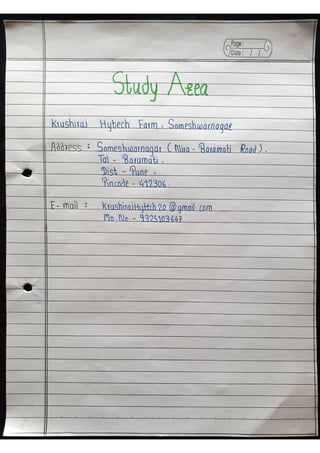 Page:
Date: / /
Study Area
Krushiraj Hytech Farm, Someshwarnagar
Address : Someshwarnagar (Nira - Baramati Road).
Tal - Baramati.
Dist - Pune.
Pincode - 412306.
E-mail : KrushirajHytech20@gmail.com
Mo. No - 9325103647